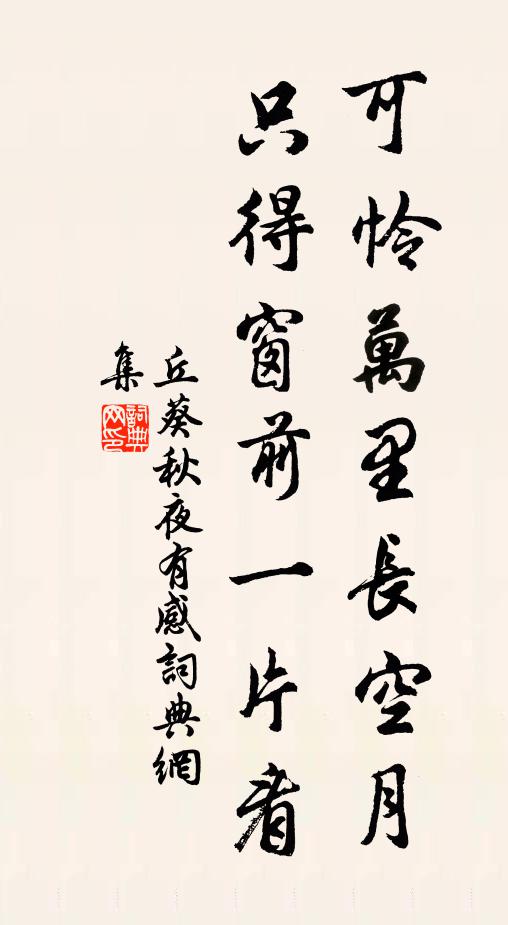 可憐萬里長空月
只得窗前一片看
丘葵秋夜有感詞典網
集
詞典網印